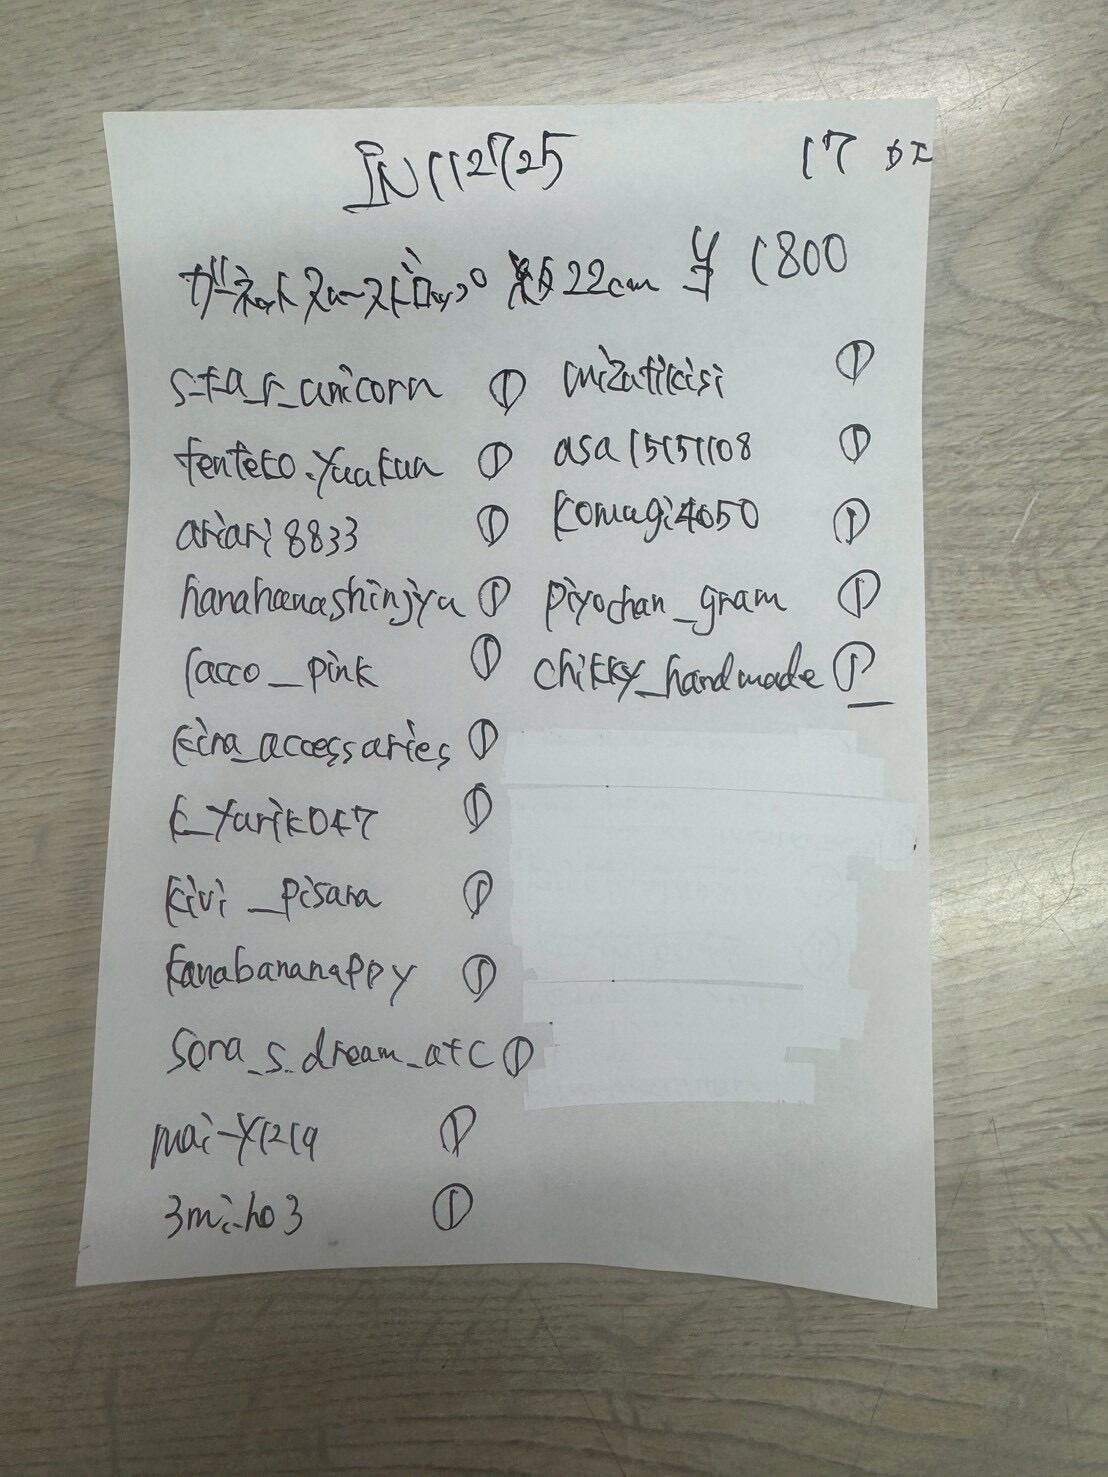 IN112725
17点
ガーネットスムースドロップ 約22cm ¥1800
s_t_a_r_unicorn ①
tenteko.yuukun ①
ariari8833 ①
hanahanashinjyu ①
racco_pink ①
kira_accessaries ①
k_yuriko47 ①
kivi_pisara ①
kanabananappy ①
sora_s.dream_atc ①
mai-y1219 ①
3mi.ho3 ①
mizutikisi ①
asa15151108 ①
komugi4050 ①
piyochan_gram ①
chikky_handmade ①